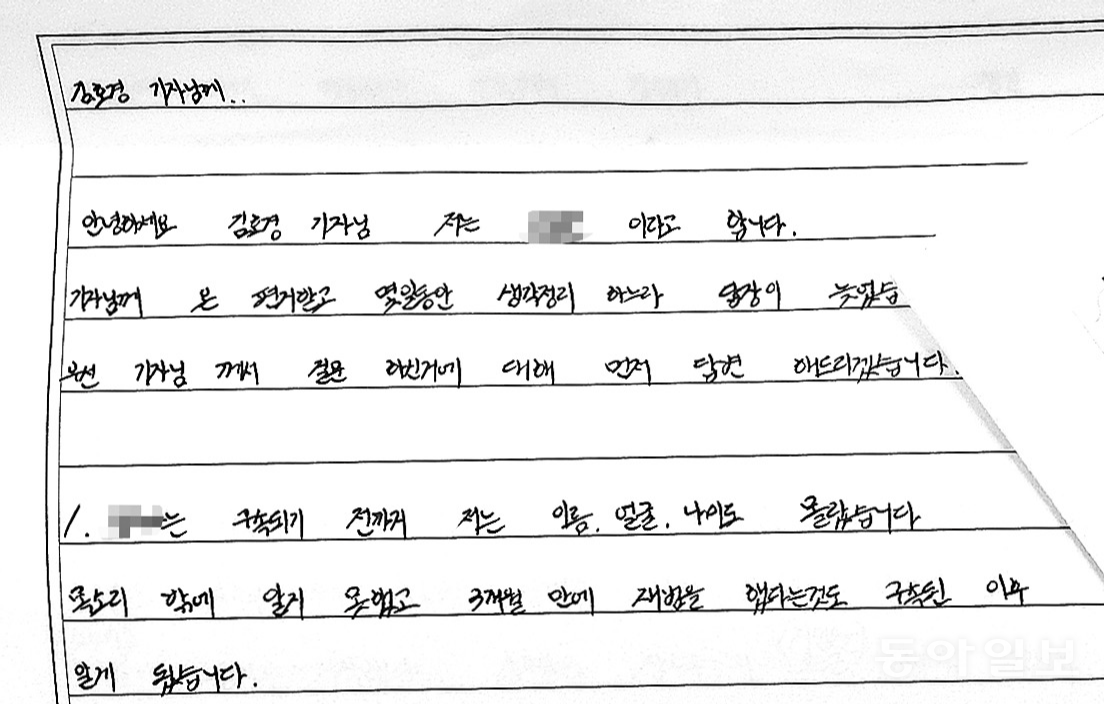 김호경 기자님께..
안녕하세요 김호경 기자님 저는 이라고 합니다.
기자님께 온 편지받고 몇일동안 생각정리 하느라 답장이 늦었습
우선 기자님 께서 질문 하신거에 대해 먼저 답변 해드리겠습니다.
1. 는 구속되기 전까지 저는 이름, 얼굴, 나이도 몰랐습니다
목소리 밖에 알지 못했고 3개월 만에 재범을 했다는것도 구속된 이후
알게 됐습니다.
동아일보